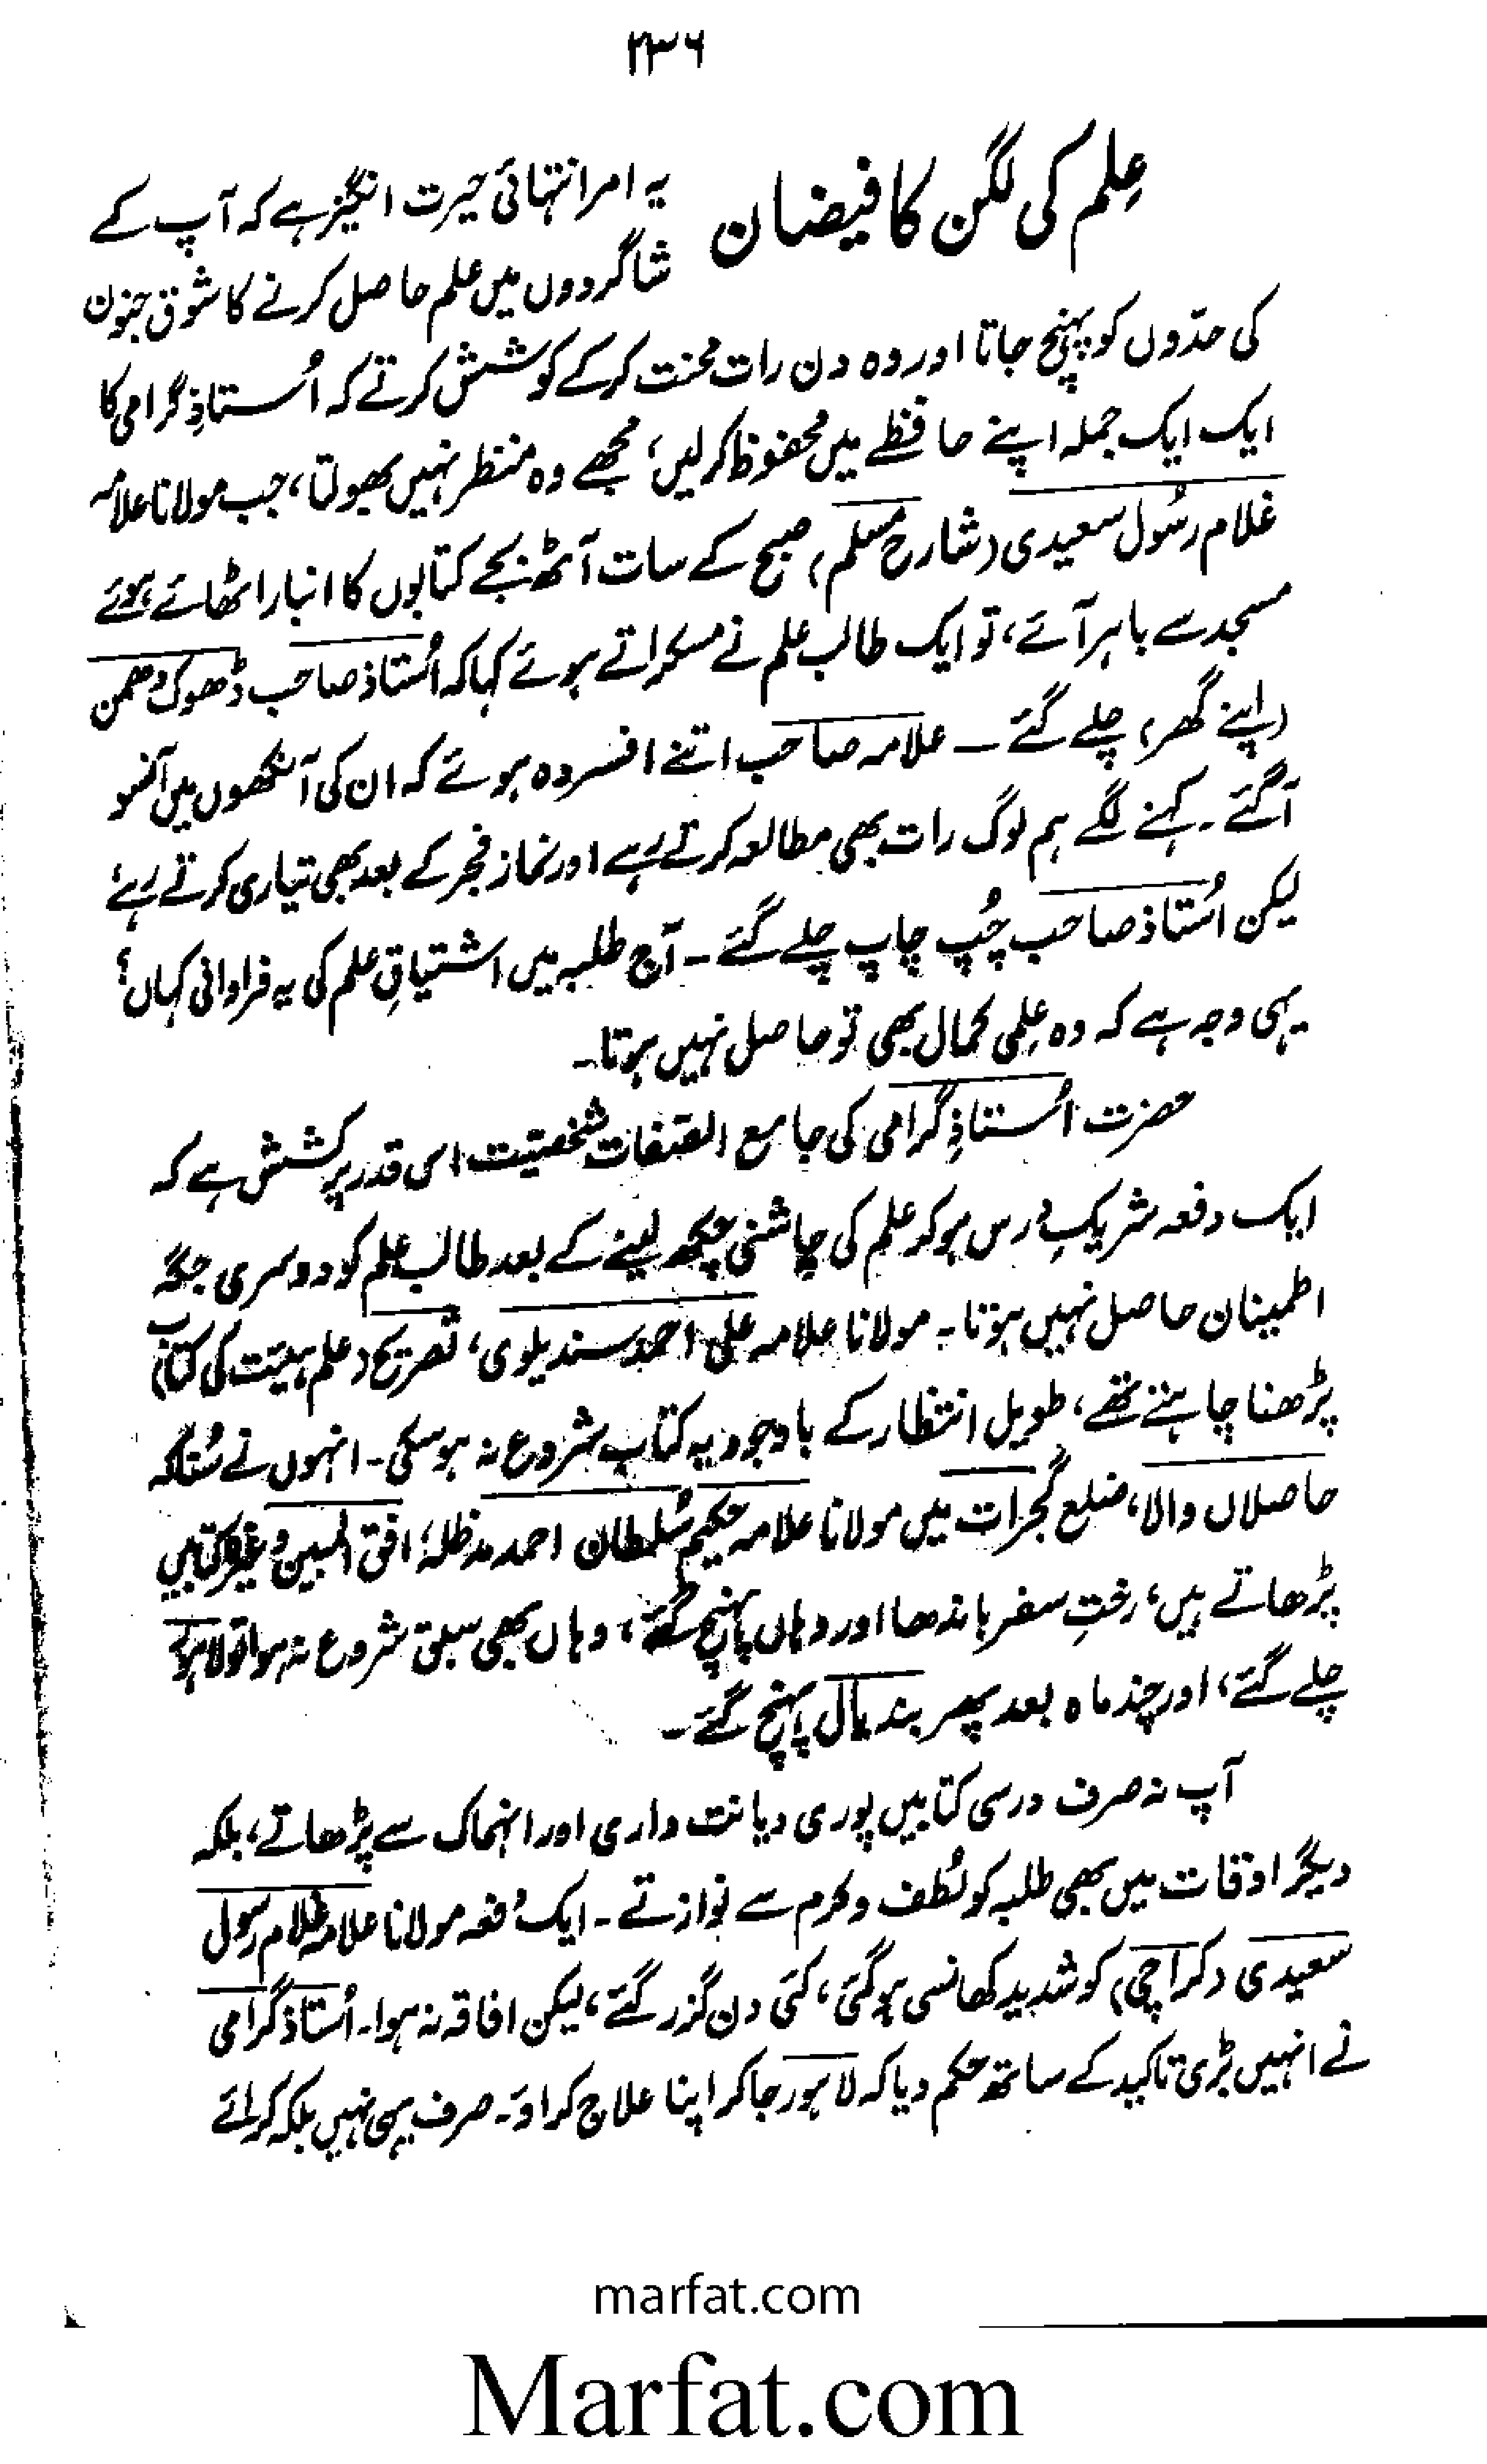 ۲۳۶
عِلم کی لگن کا فیضان
یہ امر انتہائی حیرت انگیز ہے کہ آپ کے
شاگردوں میں علم حاصل کرنے کا شوق جنون
کی حدّوں کو پہنچ جاتا اور وہ دن رات محنت کرکے کوشش کرتے کہ اُستاذِ گرامی کا
ایک ایک جملہ اپنے حافظے میں محفوظ کرلیں، مجھے وہ منظر نہیں بھولتا، جب مولانا علامہ
غلام رسُول سعیدی (شارح مسلم) صبح کے سات آٹھ بجے کتابوں کا انبار اٹھائے ہوئے
مسجد سے باہر آئے، تو ایک طالب علم نے مسکراتے ہوئے کہا کہ اُستاذ صاحب ڈھوک دھمن
(اپنے گھر) چلے گئے ـ علامہ صاحب اتنے افسردہ ہوئے کہ ان کی آنکھوں میں آنسو
آگئے ۔ کہنے لگے ہم لوگ رات بھی مطالعہ کرتے رہے اور نماز فجر کے بعد بھی تیاری کرتے رہے
لیکن اُستاذ صاحب چُپ چاپ چلے گئے ۔ آج طلبہ میں اشتیاقِ علم کی یہ فراوانی کہاں؟
یہی وجہ ہے کہ وہ عِلمی کمال بھی تو حاصل نہیں ہوتا۔
حضرت اُستاذِ گرامی کی جامع الصّفات شخصیّت اس قدر پُرکشش ہے کہ
ایک دفعہ شریکِ درس ہوکر علم کی چاشنی چکھ لینے کے بعد طالب علم کو دوسری جگہ
اطمینان حاصل نہیں ہوتا ۔ مولانا علامہ علی احمد سندیلوی، تصریح (علم ہیئت کی کتاب)
پڑھنا چاہتے تھے، طویل انتظار کے باوجود یہ کتاب شروع نہ ہوسکی ۔ انہوں نے سُنا کہ
حاصلاں والا، ضلع گجرات میں مولانا علامہ حکیم سُلطان احمد مدظلہٗ افق المبین وغیرہ کتابیں
پڑھاتے ہیں، رختِ سفر باندھا اور وہاں پہنچ گئے، وہاں بھی سبق شروع نہ ہوا تو لاہور
چلے گئے، اور چند ماہ بعد پھر بندیال پہنچ گئے ۔
آپ نہ صرف درسی کتابیں پوری دیانت داری اور انہماک سے پڑھاتے، بلکہ
دیگر اوقات میں بھی طلبہ کو لُطف و کرم سے نوازتے ۔ ایک دفعہ مولانا علامہ غلام رسول
سعیدی (کراچی) کو شدید کھانسی ہوگئی، کئی دن گزر گئے، لیکن افاقہ نہ ہوا۔ اُستاذ گرامی
نے انہیں بڑی تاکید کے ساتھ حکم دیا کہ لاہور جاکر اپنا علاج کراؤ ۔ صرف یہی نہیں بلکہ کرائے
marfat.com
Marfat.com